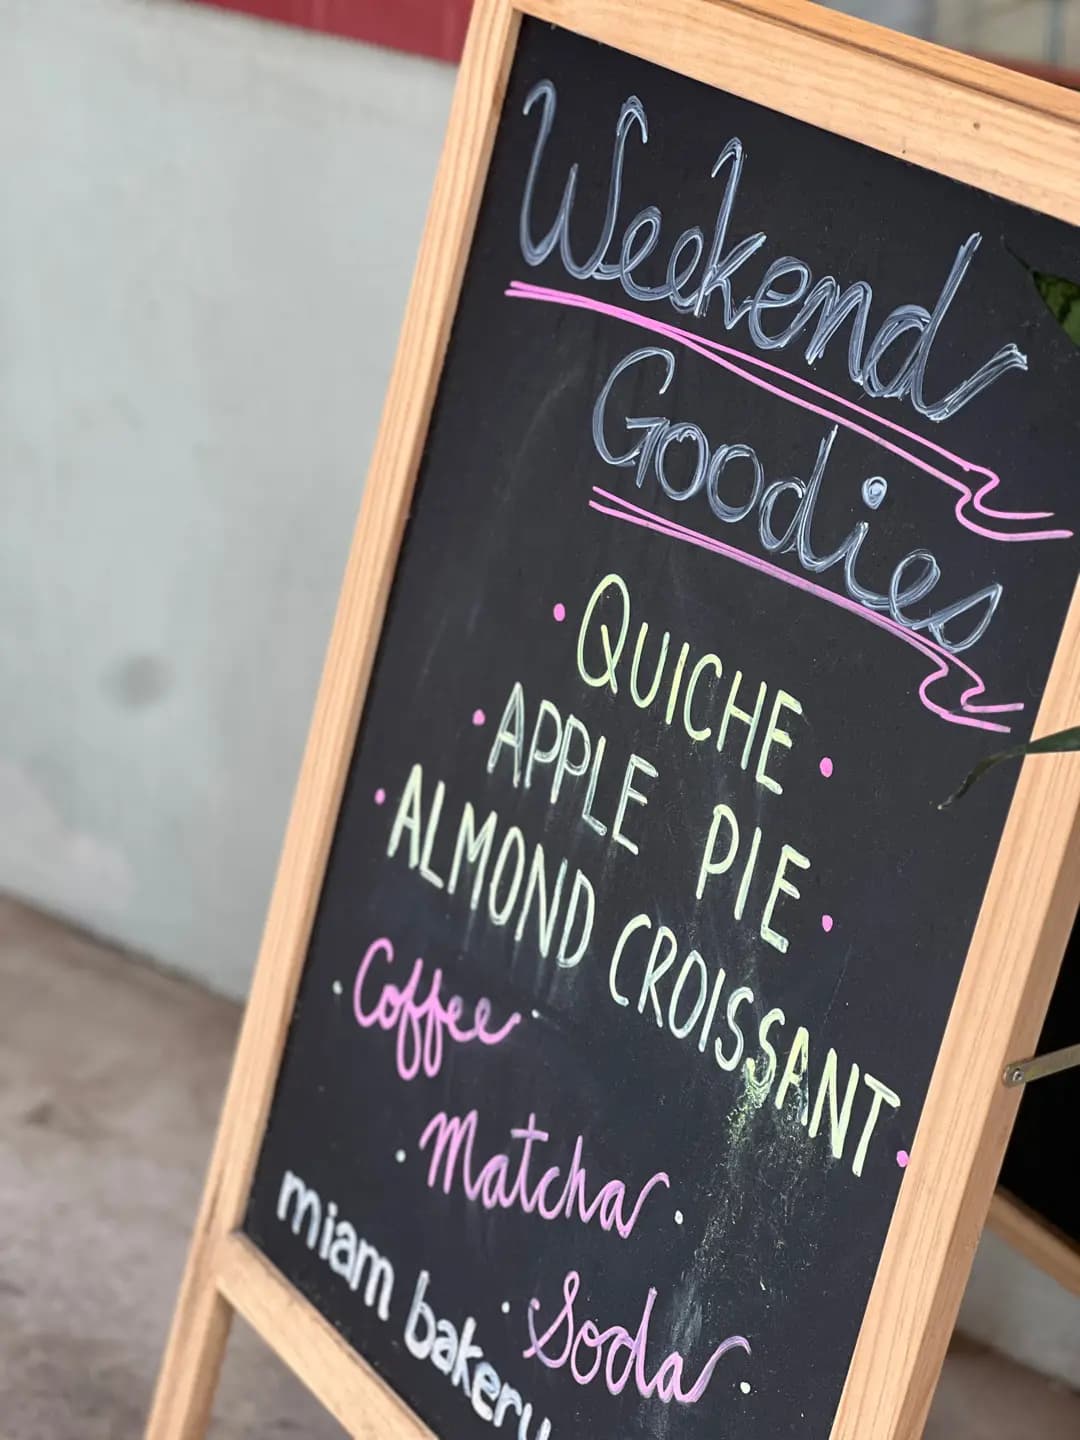 Weekend
Goodies
• QUICHE •
• APPLE PIE •
• ALMOND CROISSANT •
• Coffee •
• Matcha •
• Soda •
miam bakery